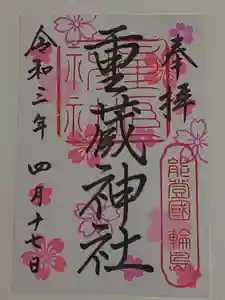 奉拝
重蔵神社
令和三年 四月十七日
能登國 輪島